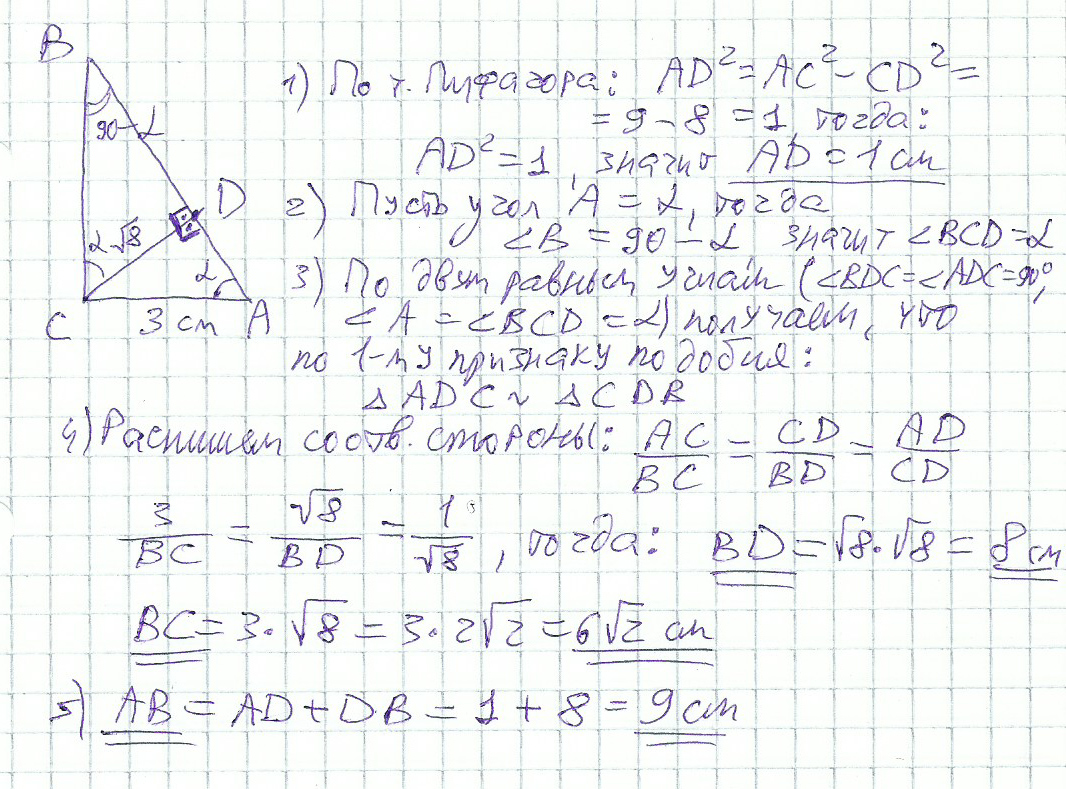 B
90-α
D
α √8
α
C 3 см A
1) По т. Пифагора: AD² = AC² - CD² =
= 9 - 8 = 1, тогда:
AD² = 1, значит AD = 1 см
2) Пусть угол A = α, тогда
∠B = 90 - α значит ∠BCD = α
3) По двум равным углам (∠BDC = ∠ADC = 90°,
∠A = ∠BCD = α) получаем, что
по 1-му признаку подобия:
△ADC ~ △CDB
4) Распишем соотв. стороны: AC/BC = CD/BD = AD/CD
3/BC = √8/BD = 1/√8, тогда: BD = √8·√8 = 8 см
BC = 3·√8 = 3·2√2 = 6√2 см
5) AB = AD + DB = 1 + 8 = 9 см